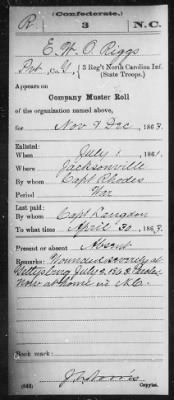 (Confederate.)
R 3 N.C.
E. W. O. Riggs
Pvt, Co. G, 3 Reg't North Carolina Inf.
(State Troops.)
Appears on
Company Muster Roll
of the organization named above,
for Nov & Dec, 1863.
Enlisted:
When July 1, 1861.
Where Jacksonville
By whom Capt Rhodes
Period War
Last paid:
By whom Capt Langdon
To what time April 30, 1863.
Present or absent Absent
Remarks: Wounded severely at
Gettysburg July 3, 1863
Now at home in N.C.
Book mark:
(642) Copyist.